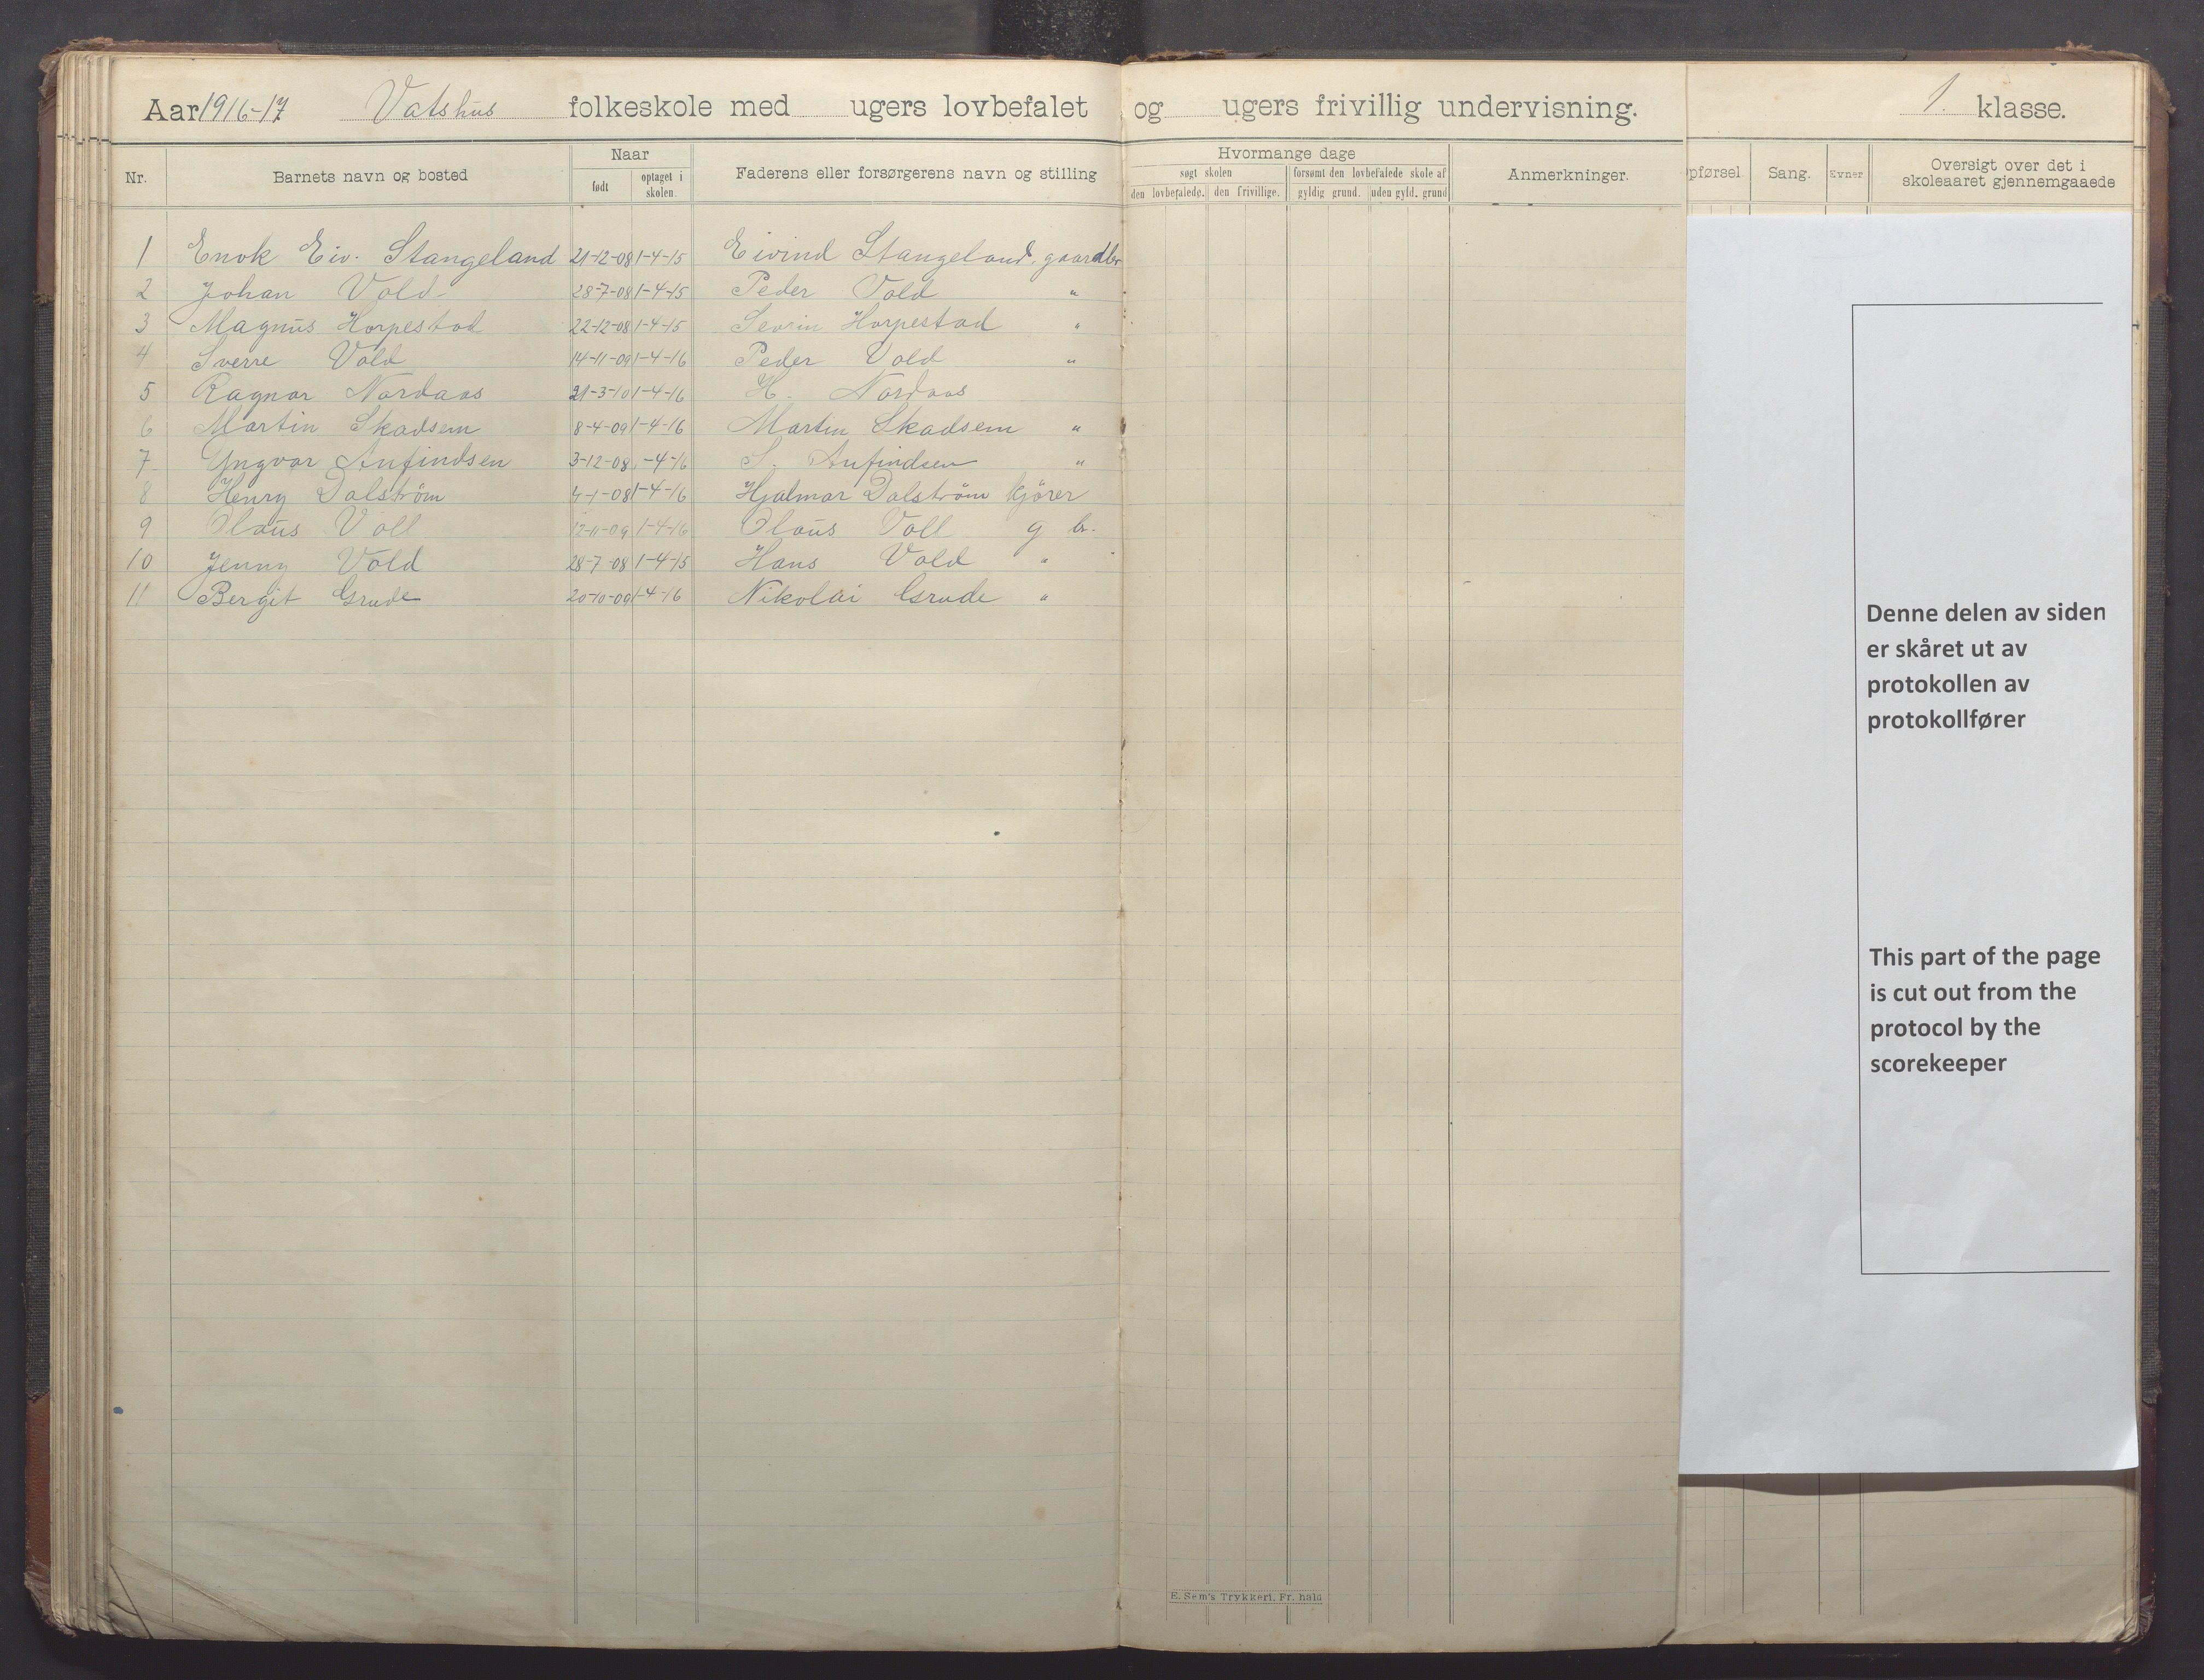 Aar 1916-17 Vatshus folkeskole med ugers lovbefalet og ugers frivillig undervisning. 1. klasse.
Nr. Barnets navn og bosted Naar født optaget i skolen. Faderens eller forsørgerens navn og stilling Hvormange dage søgt skolen den lovbefalede. den frivillige. forsømt den lovbefalede skole af gyldig grund. uden gyld. grund Anmerkninger. pførsel. Sang. Evner Oversigt over det i skoleaaret gjennemgaaede
1 Enok Eiv. Stangeland 21-12-08 1-4-15 Eivind Stangeland, gaardbr
2 Johan Vold 28-7-08 1-4-15 Peder Vold "
3 Magnus Horpestad 22-12-08 1-4-15 Sevrin Horpestad "
4 Sverre Vold 14-11-09 1-4-16 Peder Vold "
5 Ragnar Nordaas 21-3-10 1-4-16 H. Nordaas
6 Martin Skadsem 8-4-09 1-4-16 Martin Skadsem "
7 Yngvar Anfindsen 3-12-08 1-4-16 S. Anfindsen "
8 Henry Dalström 4-1-08 1-4-16 Hjalmar Dalström kjörer
9 Olaus Voll 12-11-09 1-4-16 Olaus Voll g br.
10 Jenny Vold 28-7-08 1-4-15 Hans Vold "
11 Bergit Grude 20-10-09 1-4-16 Nikolai Grude "
Denne delen av siden
er skåret ut av
protokollen av
protokollfører
This part of the page
is cut out from the
protocol by the
scorekeeper
E. Sem's Trykkeri, Fr. hald